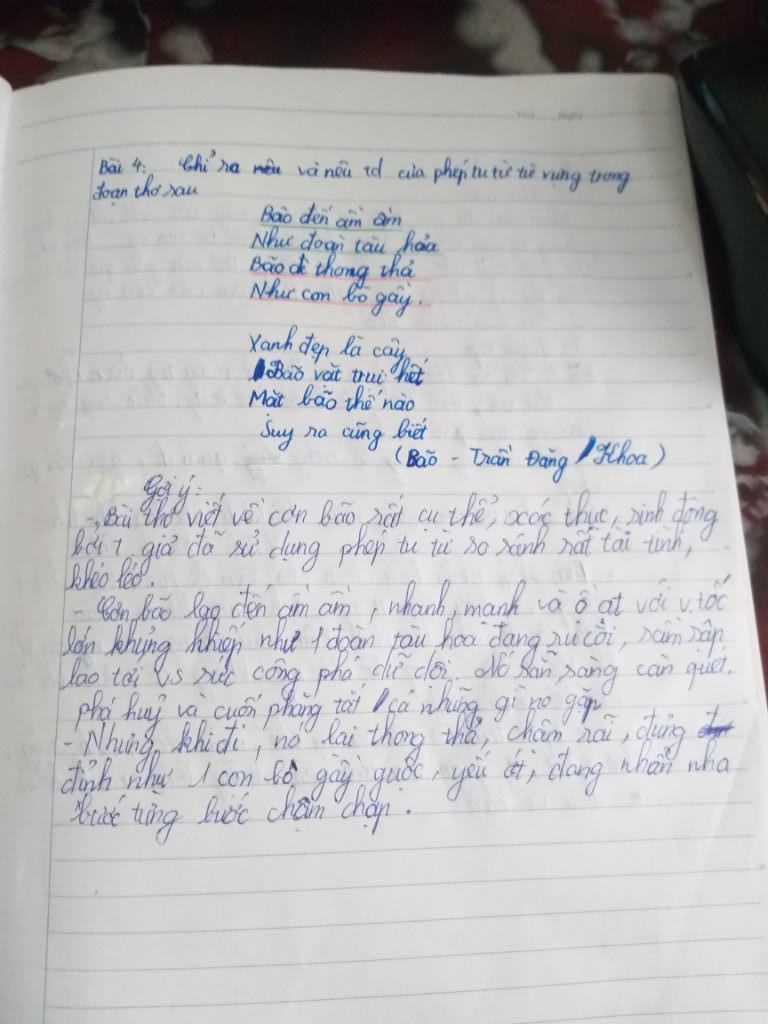 Bài 4: Chỉ ra nêu và nêu td của phép tu từ từ vựng trong
đoạn thơ sau
Bão đến ầm ầm
Như đoạn tàu hỏa
Bão đi thong thả
Như con bò gầy.
Xanh đẹp là cây
Bão vặt trụi hết
Mặt bão thế nào
Suy ra cũng biết
(Bão - Trần Đăng Khoa)
Gợi ý:
- Bài thơ viết về cơn bão rất cụ thể, xác thực, sinh động
bởi t. giả đã sử dụng phép tu từ so sánh rất tài tình,
khéo léo.
- Cơn bão lao đến ầm ầm, nhanh, mạnh và ồ ạt với v.tốc
lớn khủng khiếp như 1 đoàn tàu hoả đang rú còi, rầm rập
lao tới vs sức công phá dữ dội. Nó sẵn sàng càn quét,
phá huỷ và cuốn phăng tất cả những gì nó gặp
- Nhưng khi đi, nó lại thong thả, chậm rãi, đủng
đỉnh như 1 con bò gầy guộc, yếu ớt, đang nhẩn nha
bước từng bước chậm chạp.